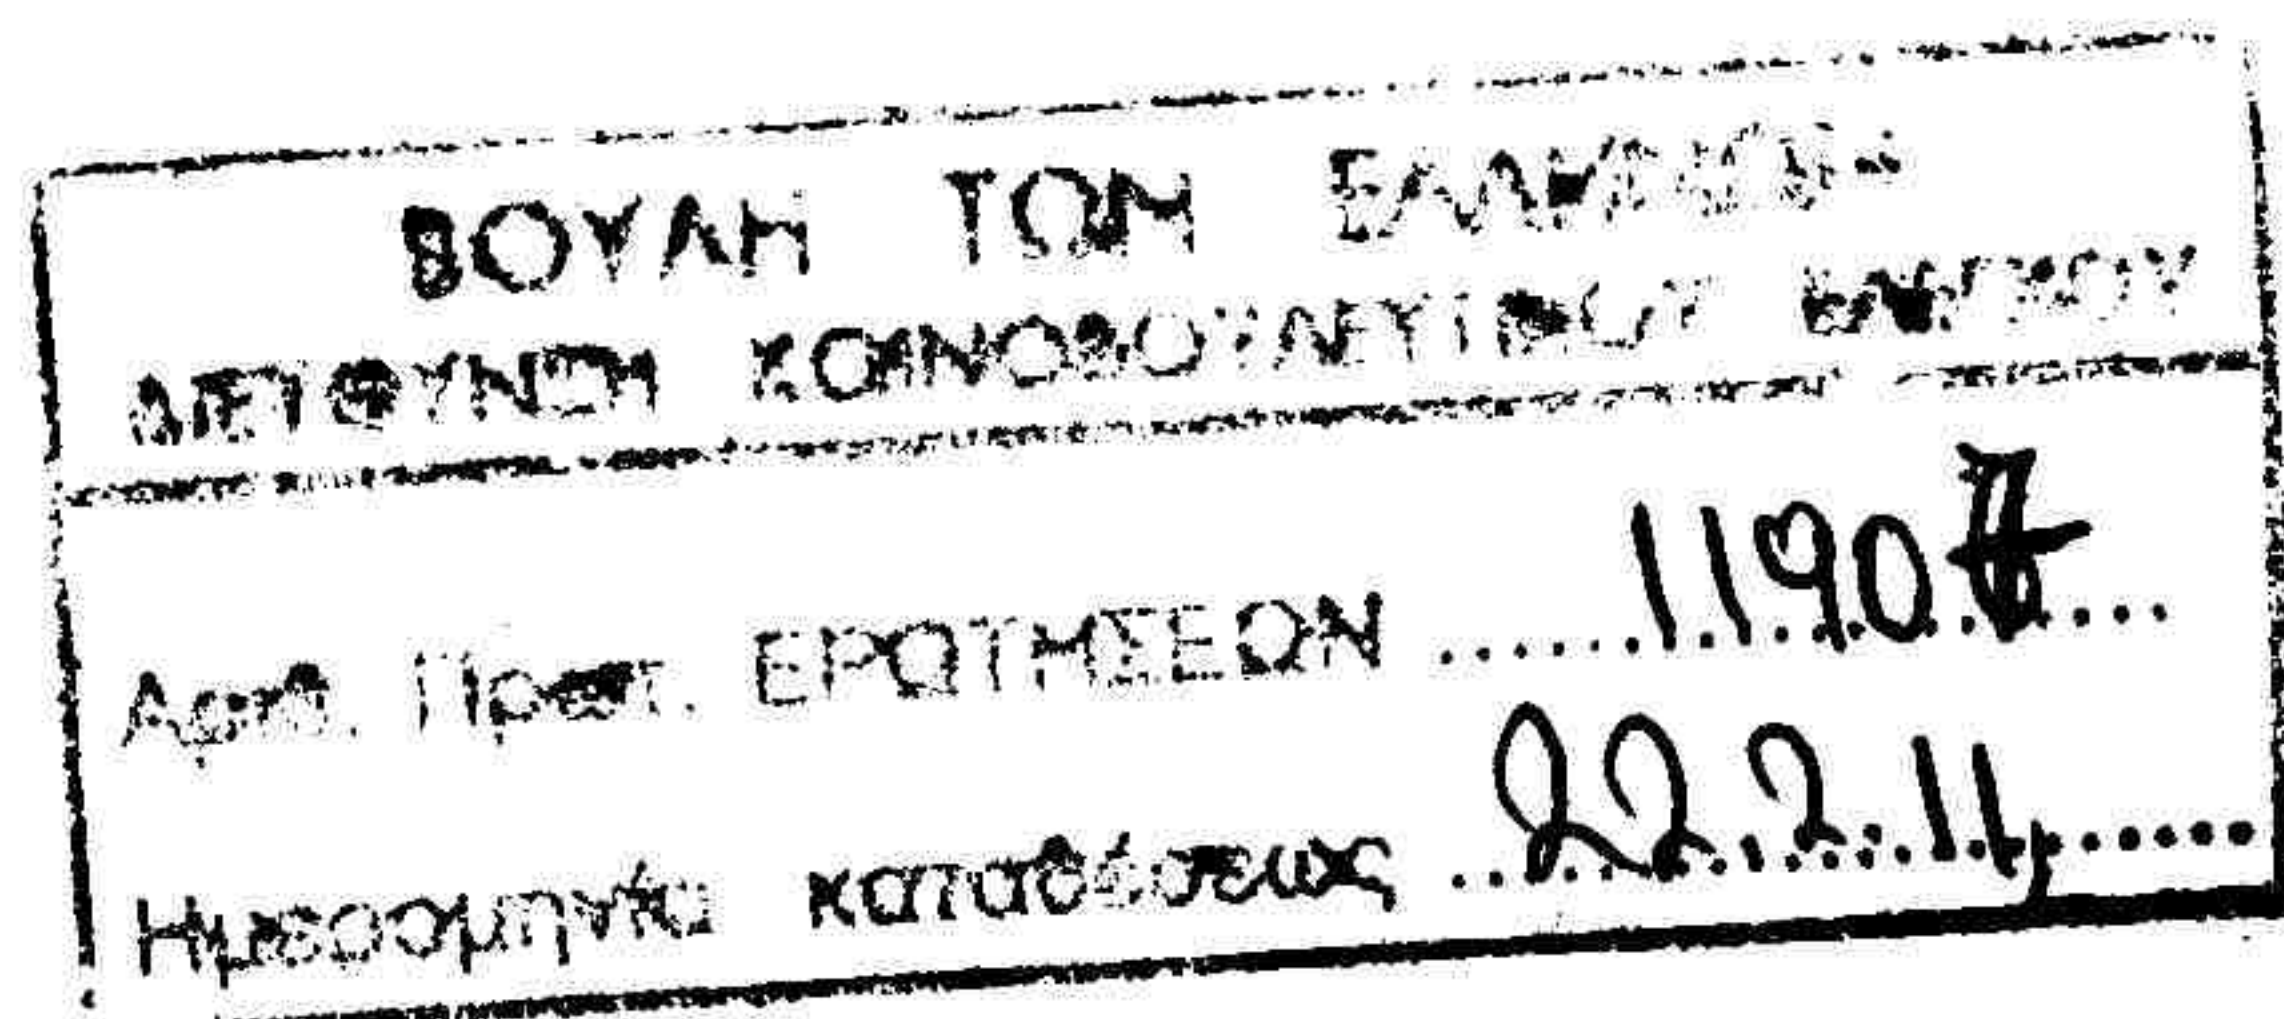 ΒΟΥΛΗ ΤΩΝ ΕΛΛΗΝΩΝ
ΔΙΕΥΘΥΝΣΗ ΚΟΙΝΟΒΟΥΛΕΥΤΙΚΟΥ ΕΛΕΓΧΟΥ
Αριθ. Πρωτ. ΕΡΩΤΗΣΕΩΝ ......11907...
Ημερομηνία καταθέσεως ..22.2.11......